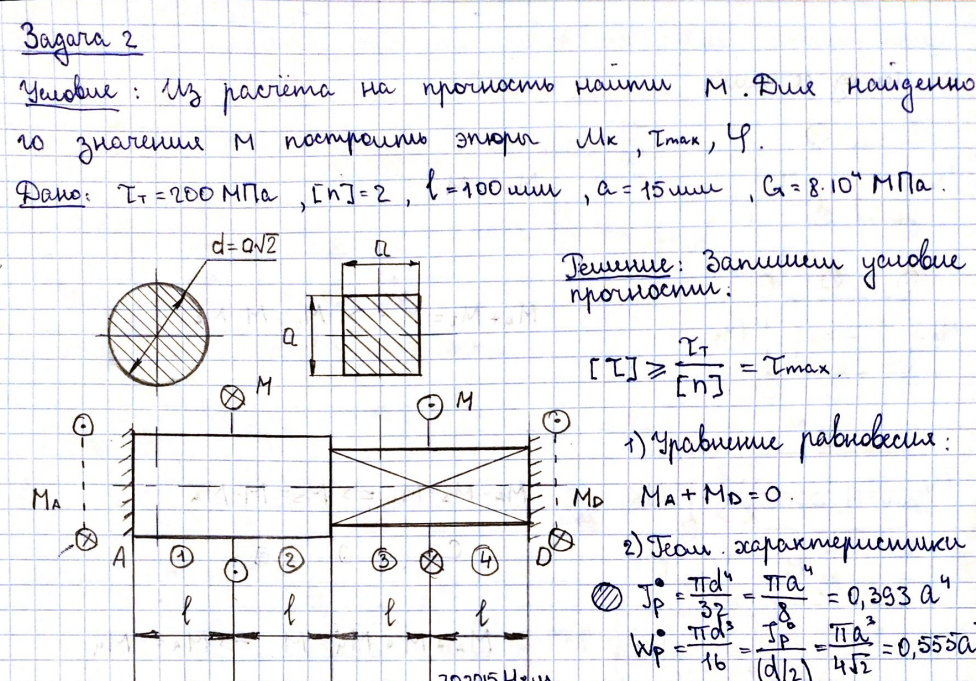 Задача 2
Условие: Из расчёта на прочность найти M. Для найденно
го значения M построить эпюры Mк, τmax, φ.
Дано: τт = 200 МПа, [n] = 2, l = 100 мм, a = 15 мм, G = 8·10⁴ МПа.
d = a√2
a
a
Решение: Запишем условие
прочности:
[τ] ≥ τт/[n] = τmax.
M
M
1) Уравнение равновесия:
MA
MD
MA + MD = 0.
A
1
2
3
4
D
2) Геом. характеристики
Jp° = πd⁴/32 = πa⁴/8 = 0,393 a⁴
l
l
l
l
Wp° = πd³/16 = Jp°/(d/2) = πa³/4√2 = 0,555a